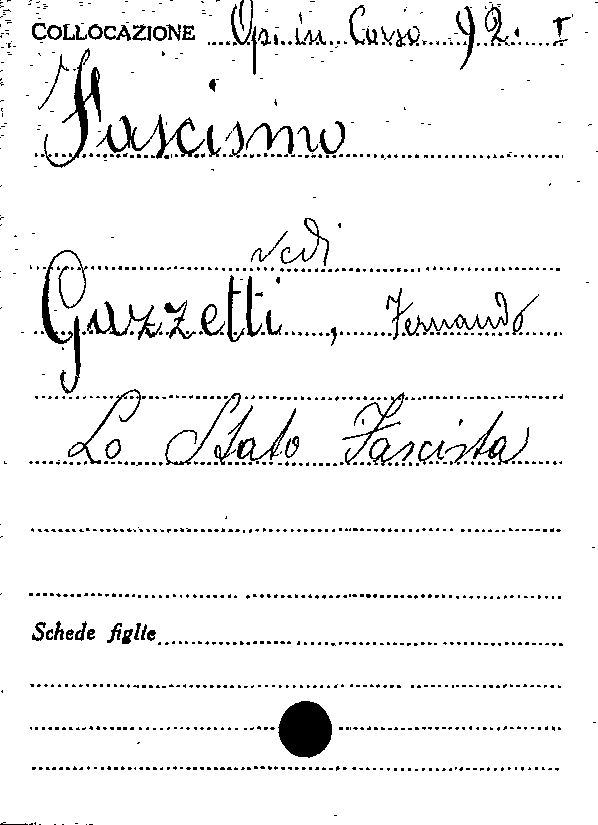 COLLOCAZIONE Op. in Corso 92. I
Fascismo
vedi
Gazzetti, Fernando
Lo Stato Fascista
Schede figlie